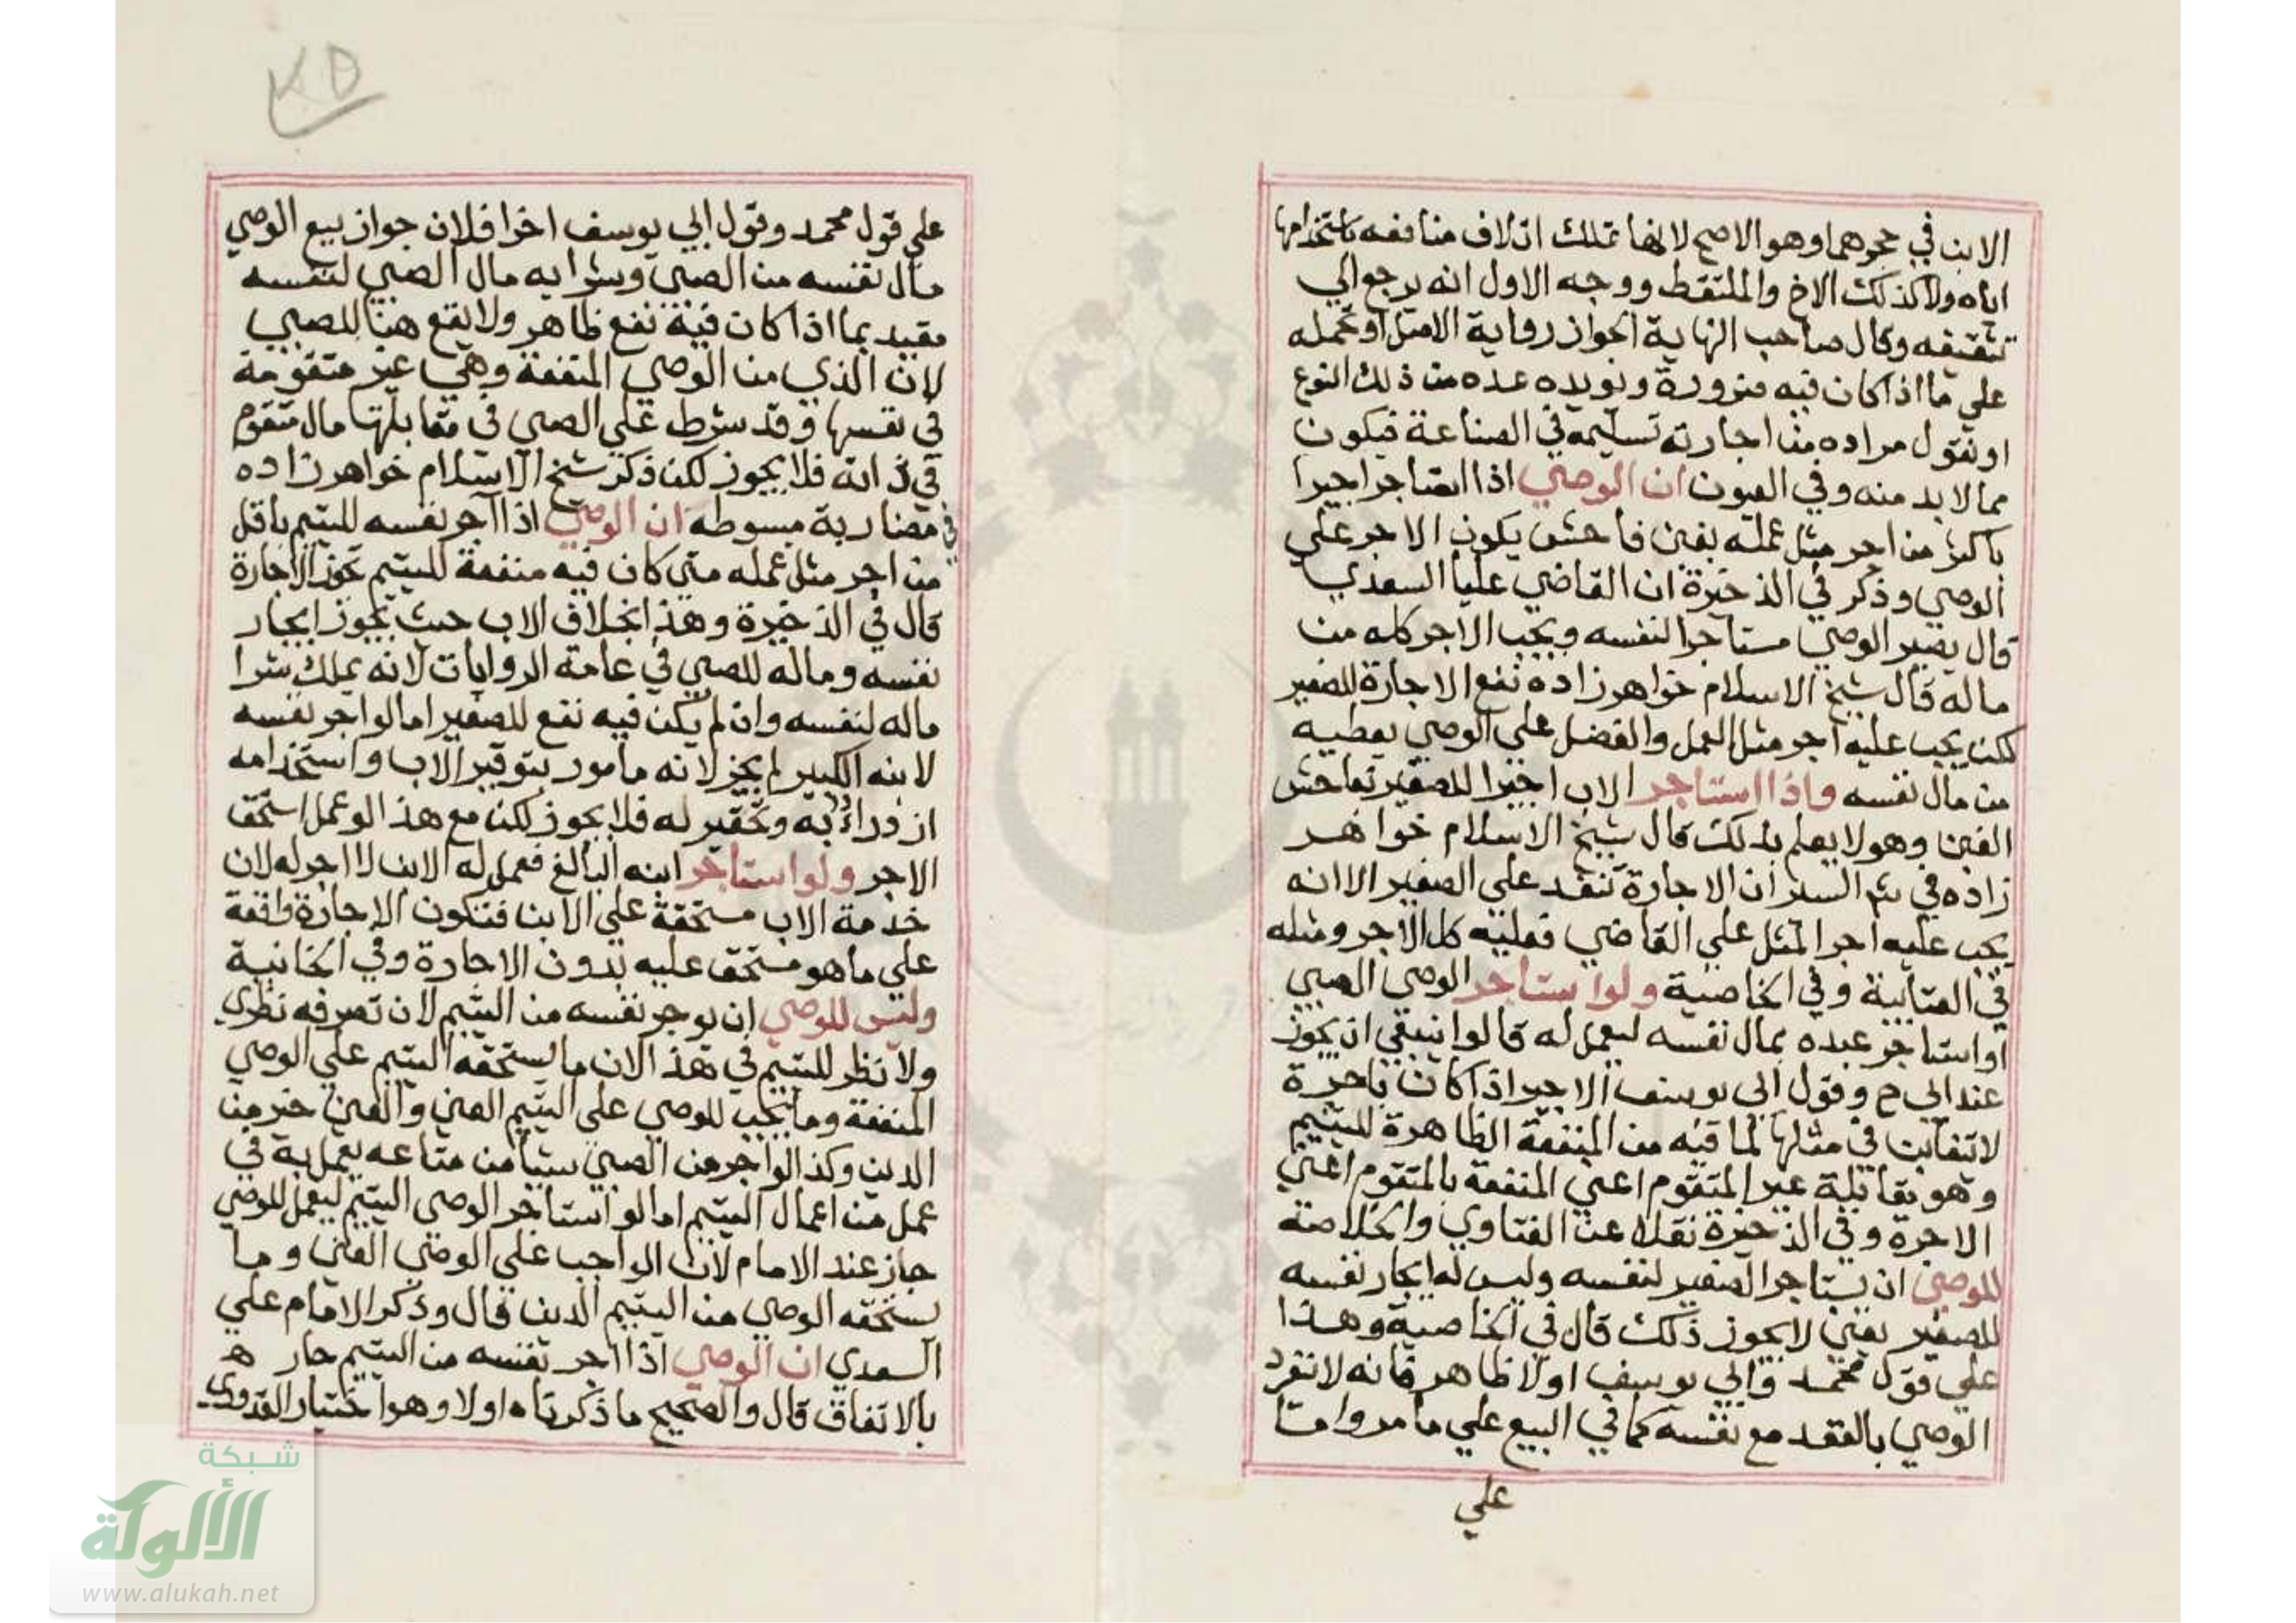 الابن في حجرهما وهو الاصح لانها تملك اتلاف منافعه باستخدامها
اياه ولا كذلك الاخ والملتقط ووجه الاول انه يرجع الي
تثقيفه وقال صاحب النهاية الجواز رواية الاصل او نحمله
علي ما اذا كان فيه ضرورة ونويده عده من ذلك النوع
او نقول مراده من اجارته تسليمه في الصناعة فيكون
مما لابد منه وفي العيون ان الوصي اذا استاجر اجيرا
باكثر من اجر مثل عمله بغبن فاحش يكون الاجر علي
الوصي وذكر في الذخيرة ان القاضي عليا السعدي
قال يصير الوصي مستاجرا لنفسه ويجب الاجر كله من
ماله قال شيخ الاسلام خواهر زاده تقع الاجارة للصغير
لكن يجب عليه اجر مثل العمل والفضل علي الوصي يعطيه
من مال نفسه واذا استاجر الاب اجيرا للصغير بفاحش
الغبن وهو لا يعلم بذلك قال شيخ الاسلام خواهر
زاده في السير ان الاجارة تنفذ علي الصغير الا انه
يجب عليه اجر المثل علي القاضي فعليه كل الاجر ومثله
في العتابية وفي الخاصية ولو استاجر الوصي الصبي
او استاجر عبده بمال نفسه ليعمل له قالوا ينبغي ان يجوز
عند ابي ح وقول ابي يوسف الاخير اذا كان باجرة
لا تتغابن في مثلها لما فيه من المنفعة الظاهرة لليتيم
وهو مقابلة غير المتقوم اعني المنفعة بالمتقوم اعني
الاجرة وفي الذخيرة نقلا عن الفتاوي والخلاصة
للوصي ان يستاجر الصغير لنفسه وليس له ايجار نفسه
للصغير يعني لا يجوز ذلك قال في الخاصية وهذا
علي قول محمد وابي يوسف اولا ظاهر فانه لا ينفرد
الوصي بالعقد مع نفسه كما في البيع علي ما مر واما
علي
علي قول محمد وقول ابي يوسف اخرا فلان جواز بيع الوصي
مال نفسه من الصبي وشرايه مال الصبي لنفسه
مقيد بما اذا كان فيه نفع ظاهر ولا يقع هنا للصبي
لان الذي من الوصي المنفعة وهي غير متقومة
في نفسها وقد شرط علي الصبي في مقابلتها مال متقوم
في ذاته فلا يجوز لكن ذكر شيخ الاسلام خواهر زاده
في مضاربة مبسوطه ان الوصي اذا آجر نفسه لليتيم باقل
من اجر مثل عمله متي كان فيه منفعة لليتيم تجوز الاجارة
قال في الذخيرة وهذا بخلاف الاب حيث يجوز ايجار
نفسه وماله للصبي في عامة الروايات لانه يملك شرا
ماله لنفسه وان لم يكن فيه نفع للصغير اما لو اجر نفسه
لابنه الكبير لم يجز لانه مامور بتوقير الاب واستخدامه
ازدراء به وتحقير له فلا يجوز لكن مع هذا لو عمل استحق
الاجر ولو استاجر ابنه البالغ فعمل له الابن لا اجر له لان
خدمة الاب مستحقة علي الابن فتكون الاجارة واقعة
علي ما هو مستحق عليه بدون الاجارة وفي الخانية
وليس للوصي ان يوجر نفسه من اليتيم لان تصرفه نظري
ولا نظر لليتيم في هذا لان ما يستحقه اليتيم علي الوصي
المنفعة وما يجب للوصي علي اليتيم العين والعين خير من
الدين وكذا لو اجر من الصبي شيئا من متاعه يعمل به في
عمل من اعمال اليتيم اما لو استاجر الوصي اليتيم ليعمل للوصي
جاز عند الامام لان الواجب علي الوصي العين وما
يستحقه الوصي من اليتيم الدين قال وذكر الامام علي
السعدي ان الوصي اذا اجر نفسه من اليتيم جاز ه
بالاتفاق قال والصحيح ما ذكرناه اولا وهو اختيار القدوري
شبكة
الألوكة
www.alukah.net